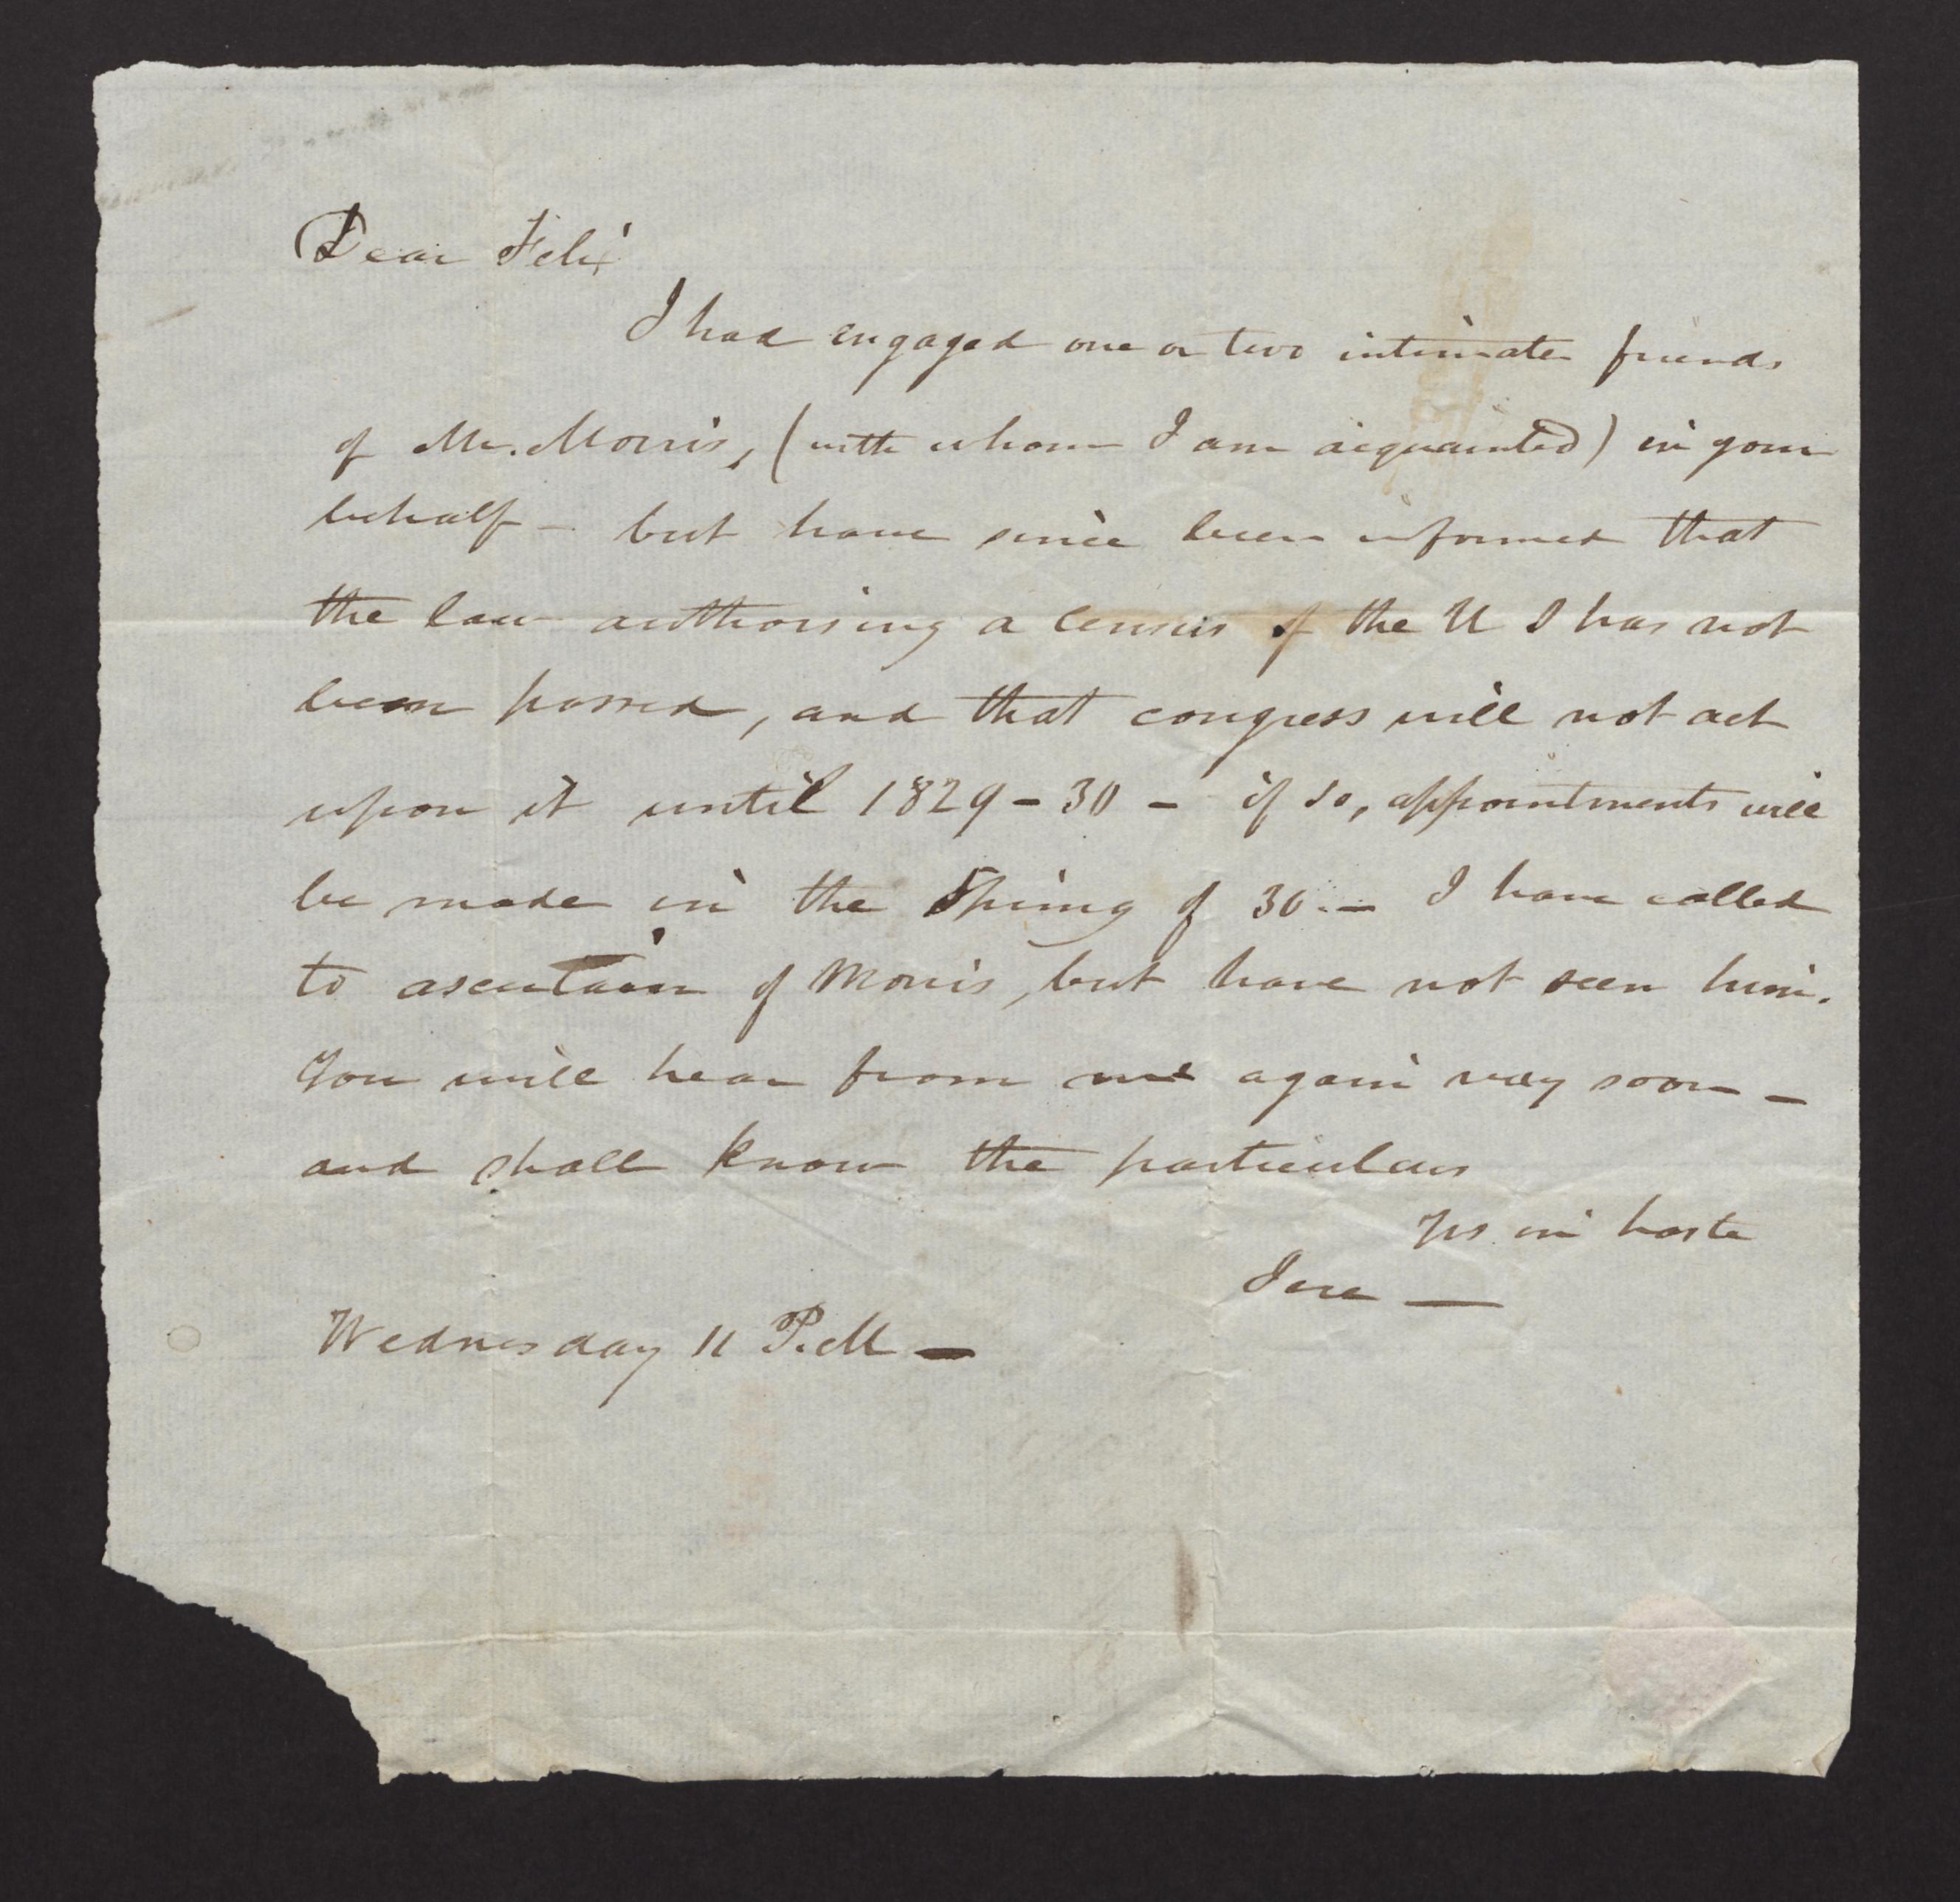 Dear Felix
I had engaged one or two intimate friends
of Mr. Morris, (with whom I am acquainted) in your
behalf - but have since been informed that
the law authorising a census of the U S has not
been passed, and that congress will not act
upon it until 1829-30 - if so, appointments will
be made in the Spring of 30.- I have called
to ascertain of Morris, but have not seen him.
You will hear from me again very soon -
and shall know the particulars
Yrs in haste
Wednesday 11 P.M -